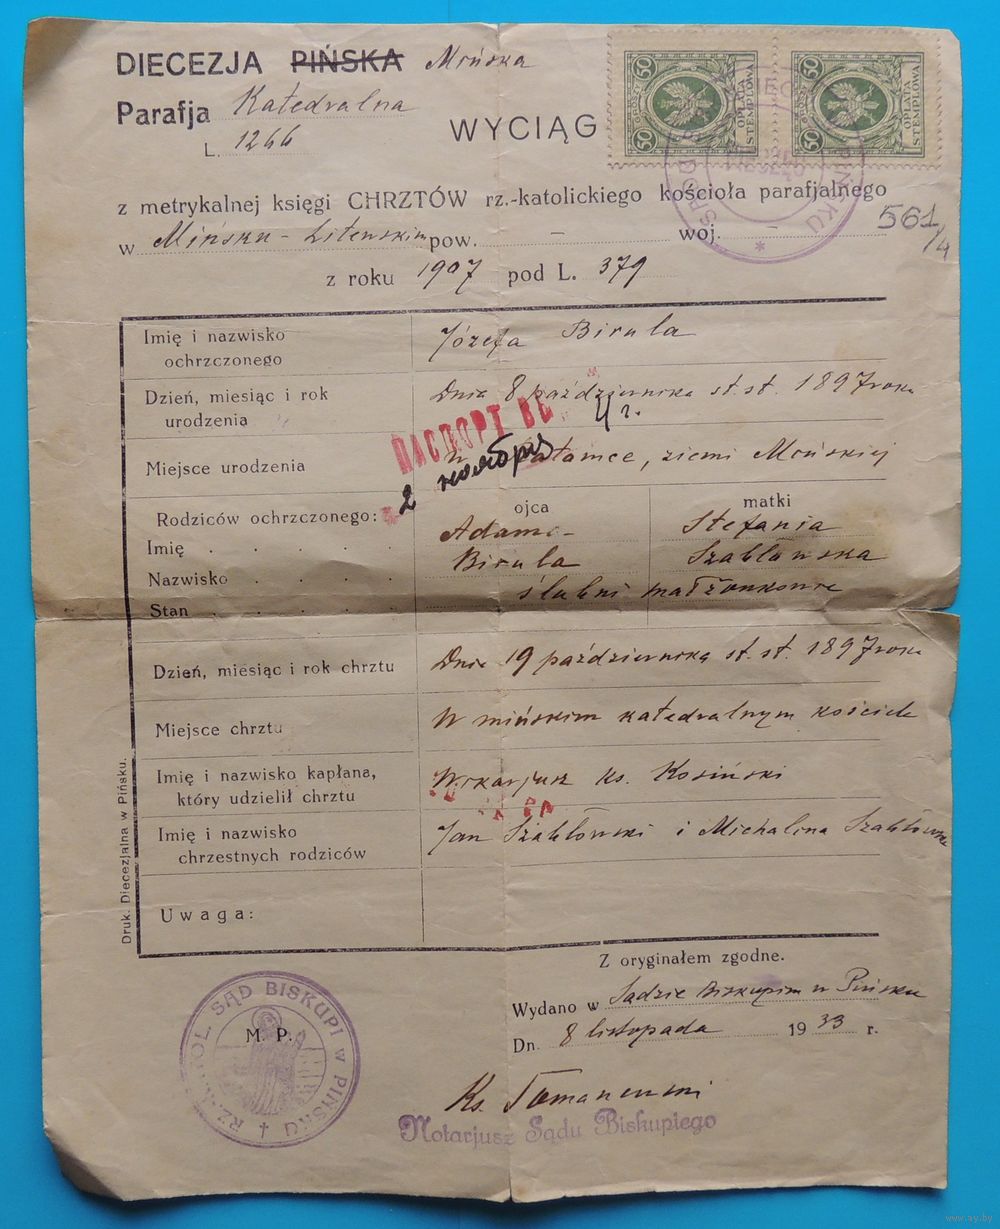 DIECEZJA PIŃSKA Mińska
Parafja Katedralna
L. 1266
WYCIĄG
50 GROSZY OPŁATA STEMPLOWA 50
50 GROSZY OPŁATA STEMPLOWA 50
z metrykalnej księgi CHRZTÓW rz.-katolickiego kościoła parafjalnego
w Mińsku-Litewskim pow. – woj. –
561/4
z roku 1907 pod L. 379
Imię i nazwisko ochrzczonego
Józefa Birula
Dzień, miesiąc i rok urodzenia
Dnia 8 października st. st. 1897 roku
ПАСПОРТ ВЫ
41 г.
2 ноября
Miejsce urodzenia
W, ziemi Mińskiej
Rodziców ochrzczonego:
ojca
matki
Imię . . . . .
Adam
Stefania
Nazwisko . . . .
Birula
Szabłowska
Stan . . . . .
ślubni małżonkowie
Dzień, miesiąc i rok chrztu
Dnia 19 października st. st. 1897 roku
Miejsce chrztu
W mińskim katedralnym kościele
Imię i nazwisko kapłana, który udzielił chrztu
Wikarjusz ks. Kosiński
Imię i nazwisko chrzestnych rodziców
Jan Szabłowski i Michalina Szabłowska
Uwaga:
Druk. Diecezjalna w Pińsku.
Z oryginałem zgodne.
Wydano w Sądzie Biskupim w Pińsku
Dn. 8 listopada 1933 r.
M. P.
RZ.-KATOL. SĄD BISKUPI w PIŃSKU
Ks.
Notarjusz Sądu Biskupiego
www.ay.by